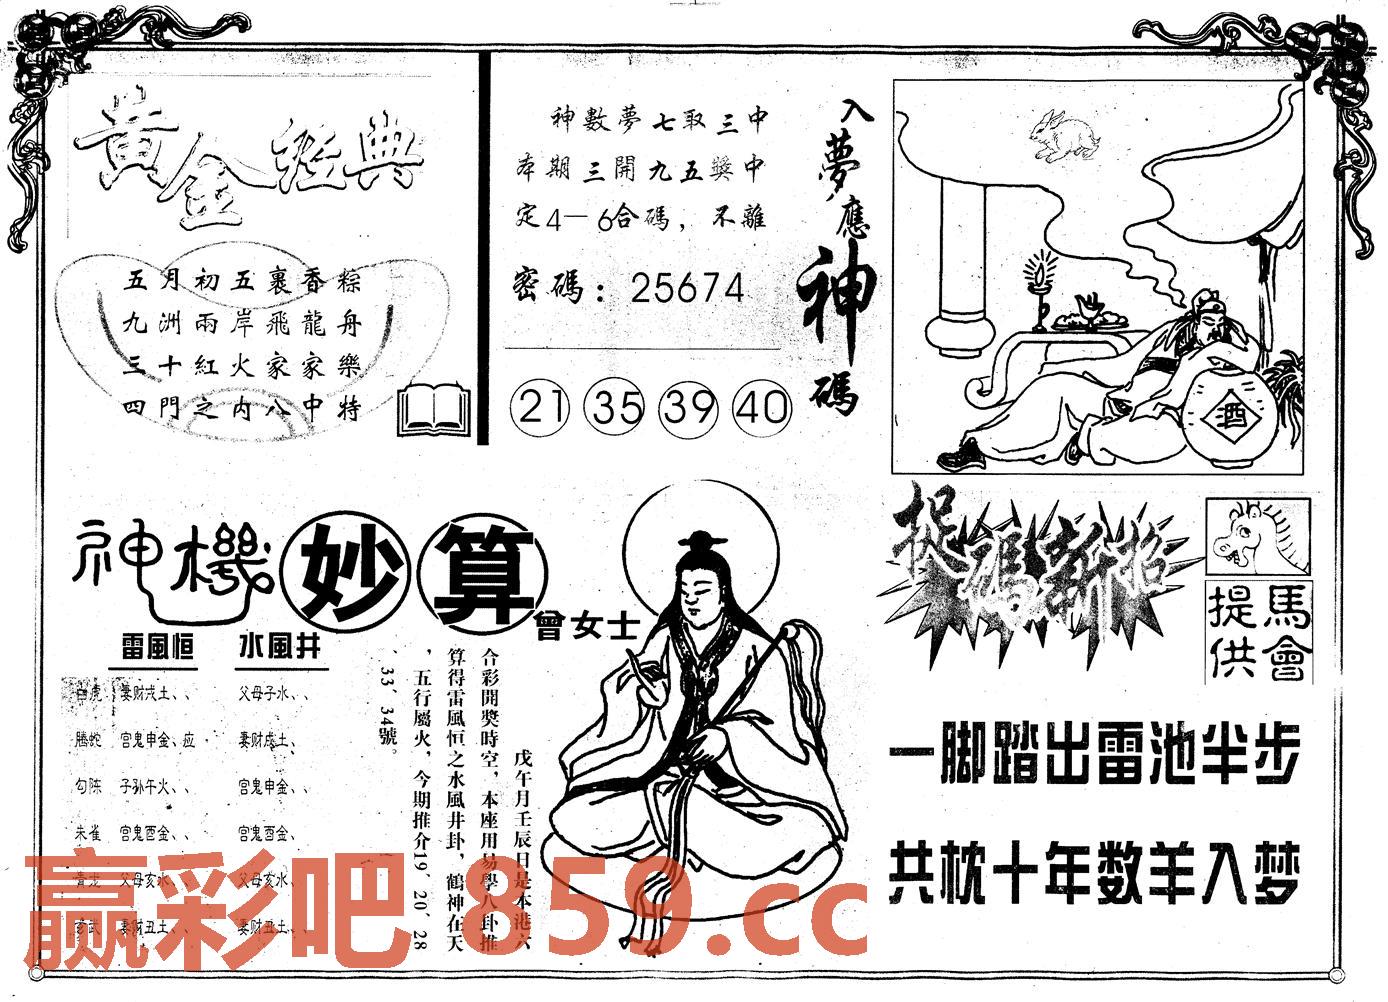 黄金经典
五月初五裹香粽
九洲兩岸飛龍舟
三十紅火家家樂
四門之内八中特
神數夢七取三中
本期三開九五獎中
定4一6合碼，不離
密碼：25674
21 35 39 40
入夢應神碼
酒
神機妙算
曾女士
雷風恒 水風井
白虎 妻财戌土、、 父母子水、、
螣蛇 宫鬼申金、应 妻财戌土、
勾陈 子孙午火、、 宫鬼申金、、
朱雀 宫鬼酉金、、 宫鬼酉金、
青龙 父母亥水、、 父母亥水、
玄武 妻财丑土、、 妻财丑土、、
戊午月壬辰日是本港六
合彩開獎時空，本座用易學八卦推
算得雷風恒之水風井卦，鶴神在天
，五行屬火，今期推介19、20、28
、33、34號。
捉碼新招
馬會提供
一脚踏出雷池半步
共枕十年数羊入梦
赢彩吧 859.cc